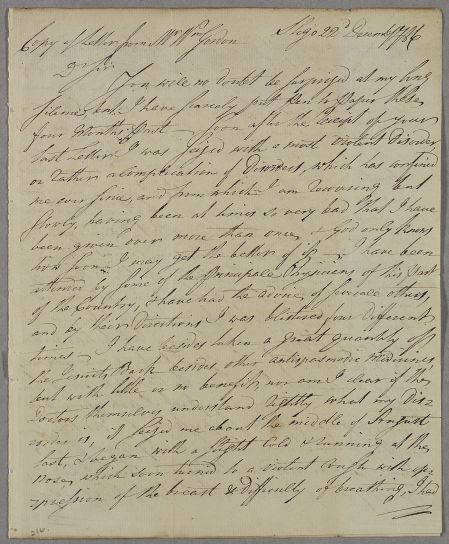 Copy of Letter from Mr Wm Gordon Sligo 22d Decemb 1786
Dr Sir
You will no doubt be surprised at my long
silence, but I have scarcely put pen to Paper these
four Months past Soon after the Receipt of your
last Letter I was seized with a most violent Disorder
or rather a complication of Disorders, which has confined
me ever since, and from which I am recovering but
slowly, having been at times so very bad that I have
been given over more than once, & God only knows
how soon I may get the better of it I have been
attended by some of the Principale Physicians of this Part
of the Country, & have had the advice of severale others,
and by their Directions I was blistered four different
times I have besides taken a great quantity of
the Jesuits Bark besides other antispasmodic Medicines
but with little or no benefit, nor am I clear if the
Doctors themselves understand rightly what my Dis
order is, it seized me about the middle of August
last, & began with a slight Cold & running at the
Nose, which soon turned to a violent Cough with op-
pression of the breast & difficulty of breathing, I had
216.